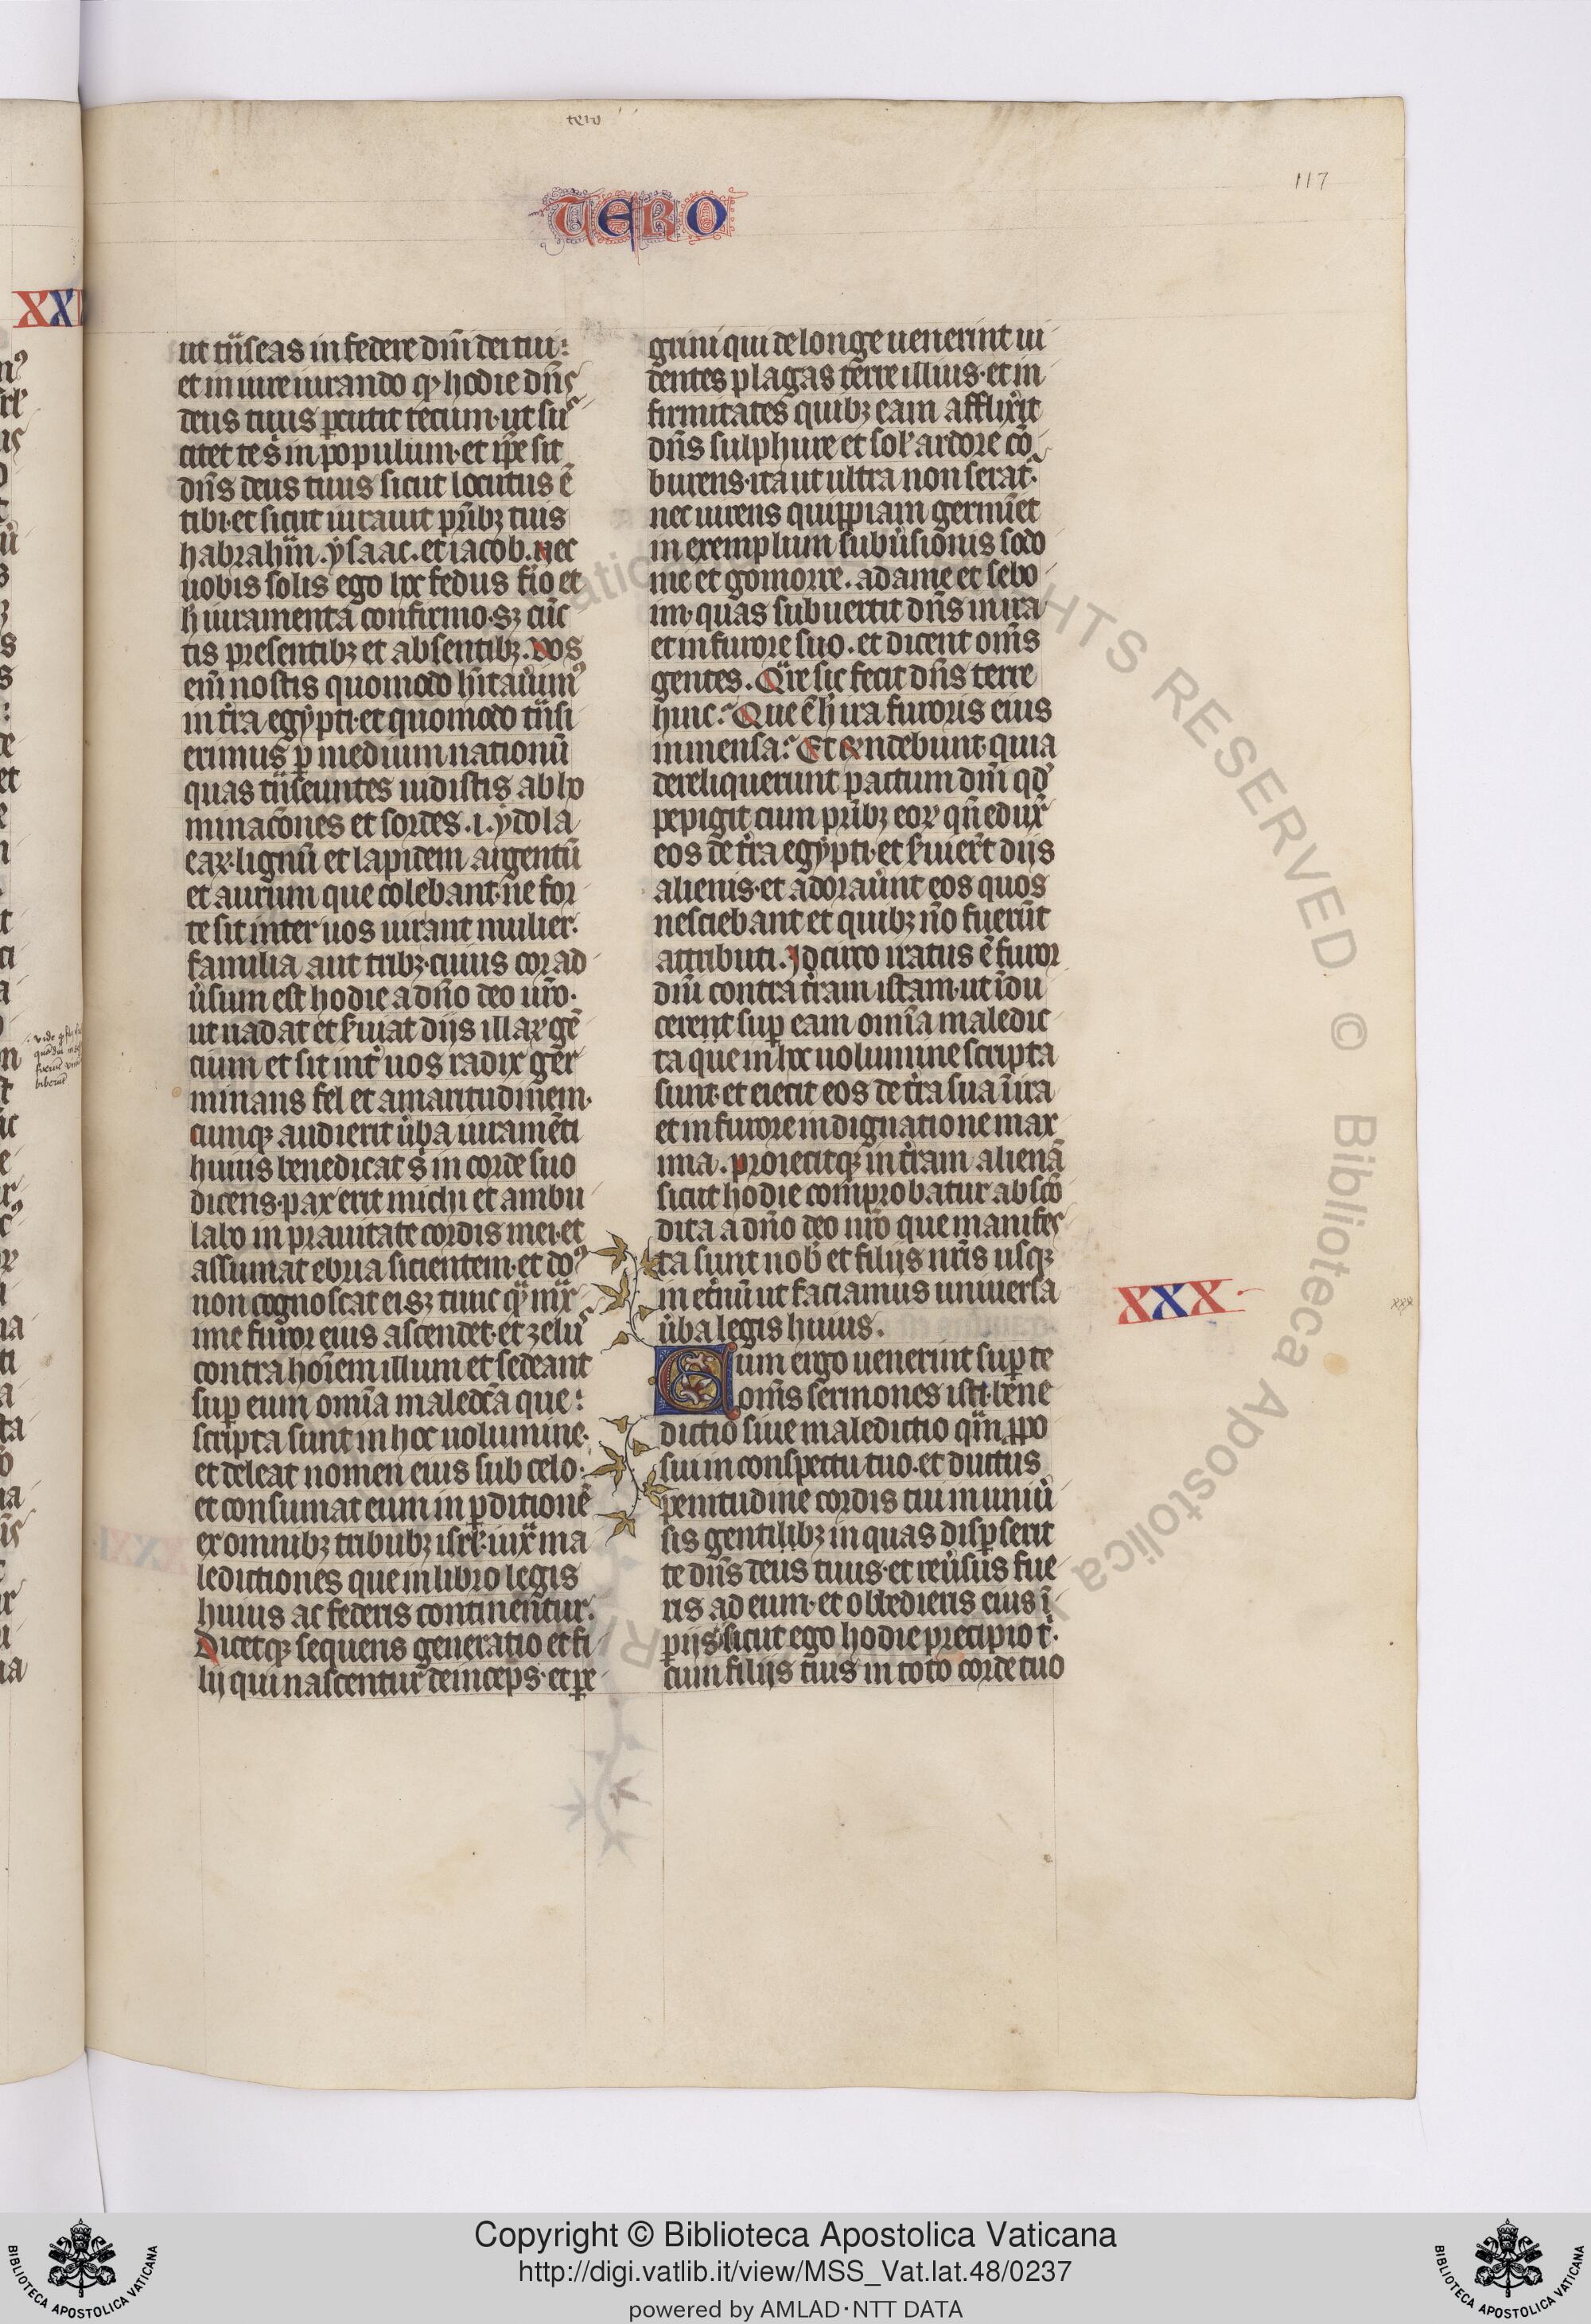 tero
117
TERO
ut tͥnseas in federe dn̄i dei tui:
et in iureiurando qͦ hodie dn̄s
deus tuus ꝑcutit tecum· ut sus
citet te s̓ in populum· et ip̄e sit
dn̄s deus tuus sicut locutus ē
tibi· et sicut iurauit pr̄ibꝫ tuis
habrahm̄. ysaac. et iacob. Nec
uobis solis ego hoc fedus f̓io et
h̓ iuramenta confirmo· sꝫ cūc
tis presentibꝫ et absentibꝫ. Vos
eni̅ nostis quomodo hītauim̓ꝰ
in t̓ra egypti· et quomodo tͥnsi
erimus ꝑ medium nationū
quas tͣnseuntes uidistis abho
minac̄ones et sordes .i. ydola
eaꝝ· lignū et lapidem argentū
et aurum que colebant· ne for
te sit inter uos uir aut mulier·
familia aut tribꝫ· cuius cor ad
u̓sum est hodie a dn̄o deo ur̄o·
ut uadat et s̓uiat diis illaꝝ gē
cium et sit int̓ uos radix ger
minans fel et amaritudinem·
cumqꝫ audierit u̓ba iuramēti
huius benedicat s̓ in corde suo
dicens· pax erit michi et ambu
labo in prauitate cordis mei· et
assumat ebria sicientem· et dn̄ꝰ
non cognoscat ei sꝫ tunc qͣm mͣx
ime furor eius ascendet· et zelus
contra hoi̅em illum et sedeant
suꝑ eum omi̅a maledc̄a que:
scripta sunt in hoc uolumine·
et deleat nomen eius sub celo·
et consumat eum in ꝑditionē
ex omnibꝫ tribubꝫ isrl̓· iuxͣ ma
ledictiones que in libro legis
huius ac federis continentur.
Dicetqꝫ sequens generatio et fi
lij qui nascentur deinceps· et ꝑe
grini qui de longe uenerint ui
dentes plagas terre illius· et in
firmitates quibꝫ eam afflix̓it
dn̄s sulphure et sol̓ ardore cō
burens· ita ut ultra non serat̓·
nec uirens quippiam germi̅et
in exemplum subu̓sionis sodo
me et gomorre. adame et sebo
im· quas subuertit dn̄s in ira
et in furore suo. et dicent om̄s
gentes. Qͣre sic fecit dn̄s terre
huic? Que ē h̓ ira furoris eius
inmensa? Et rn̄debunt· quia
dereliquerunt pactum dn̄i qd̓
pepigit cum pr̄ibꝫ eoꝝ qn̄ edux̓
eos de t̓ra egypti· et s̓uier̄t diis
alienis· et adorau̓unt eos quos
nesciebant et quibꝫ nō fuerūt
attributi. Idcirco iratus ē furor
dn̄i contra t̓ram istam· ut īdu
ceret suꝑ eam omi̅a maledic
ta que in hoc uolumine scripta
sunt· et eiecit eos de t̓ra sua ī ira
et in furore indignatione max
ima. Proiecitqꝫ in t̓ram alienā
sicut hodie comprobatur abscō
dita a dn̄o deo nr̄o que manifes
ta sunt nob̓ et filijs nr̄is usqꝫ
in et̓nū ut faciamus uniuersa
u̓ba legis huius.
XXX
xxx
Cum ergo uenerint suꝑ te
om̄s sermones isti· bene
dictio siue maledictio qͣm ꝓpo
sui in conspectu tuo· et ductus
penitudine cordis tui in uniu̓
sis gentilibꝫ in quas disꝑserit
te dn̄s deus tuus· et reu̓sus fue
ris ad eum· et obedieris eius ī
ꝑijs sicut ego hodie precipio t̓·
cum filijs tuis in toto corde tuo
XXI
Copyright © Biblioteca Apostolica Vaticana
http://digi.vatlib.it/view/MSS_Vat.lat.48/0237
powered by AMLAD·NTT DATA
BIBLIOTECA APOSTOLICA VATICANA
BIBLIOTECA APOSTOLICA VATICANA